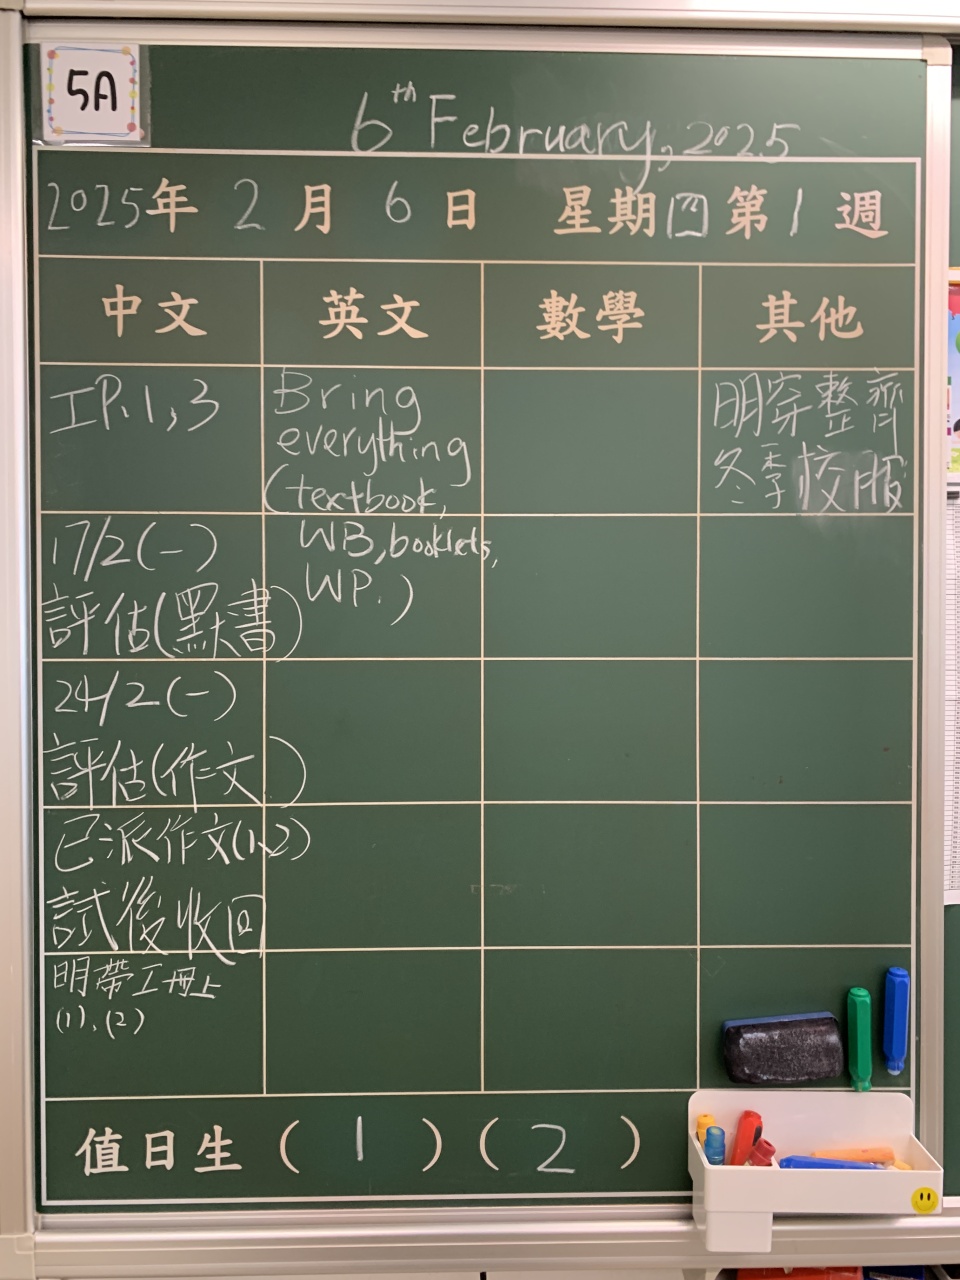 5A
6th February, 2025
2025年 2 月 6 日 星期四 第 1 週
中文 英文 數學 其他
工P.1,3
17/2(一)
評估(默書)
24/2(一)
評估(作文)
已派作文(1、2)
試後收回
明帶工冊上
(1)、(2)
Bring
everything
(textbook,
WB,booklets,
WP.)
明穿整齊
冬季校服
值日生 ( 1 ) ( 2 )